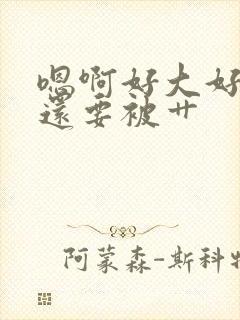 嗯啊好大好
还要被艹
阿蒙森-斯科特